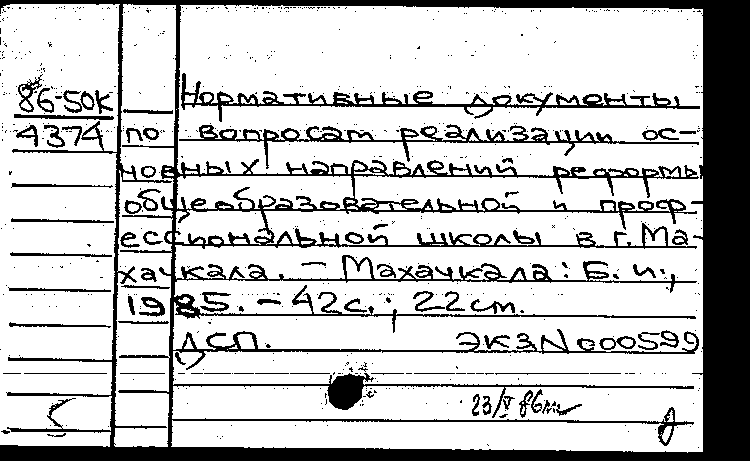 86-50к Нормативные документы
4374 по вопросам реализации ос-
новных направлений реформы
общеобразовательной и проф-
ессиональной школы в г. Ма-
хачкала. - Махачкала: Б. и.,
1985. - 42с.; 22см.
ДСП. ЭКЗN000599
23/V 86